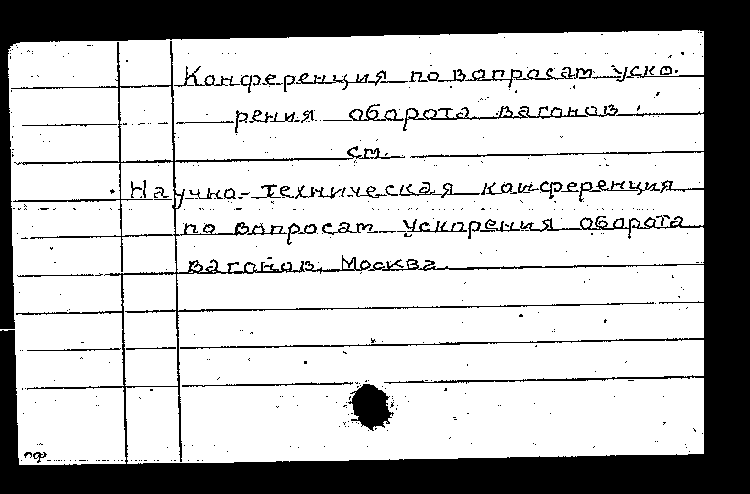 Конференция по вопросам уско-
рения оборота вагонов.
см.
Научно-техническая конференция
по вопросам ускорения оборота
вагонов, Москва.
пф